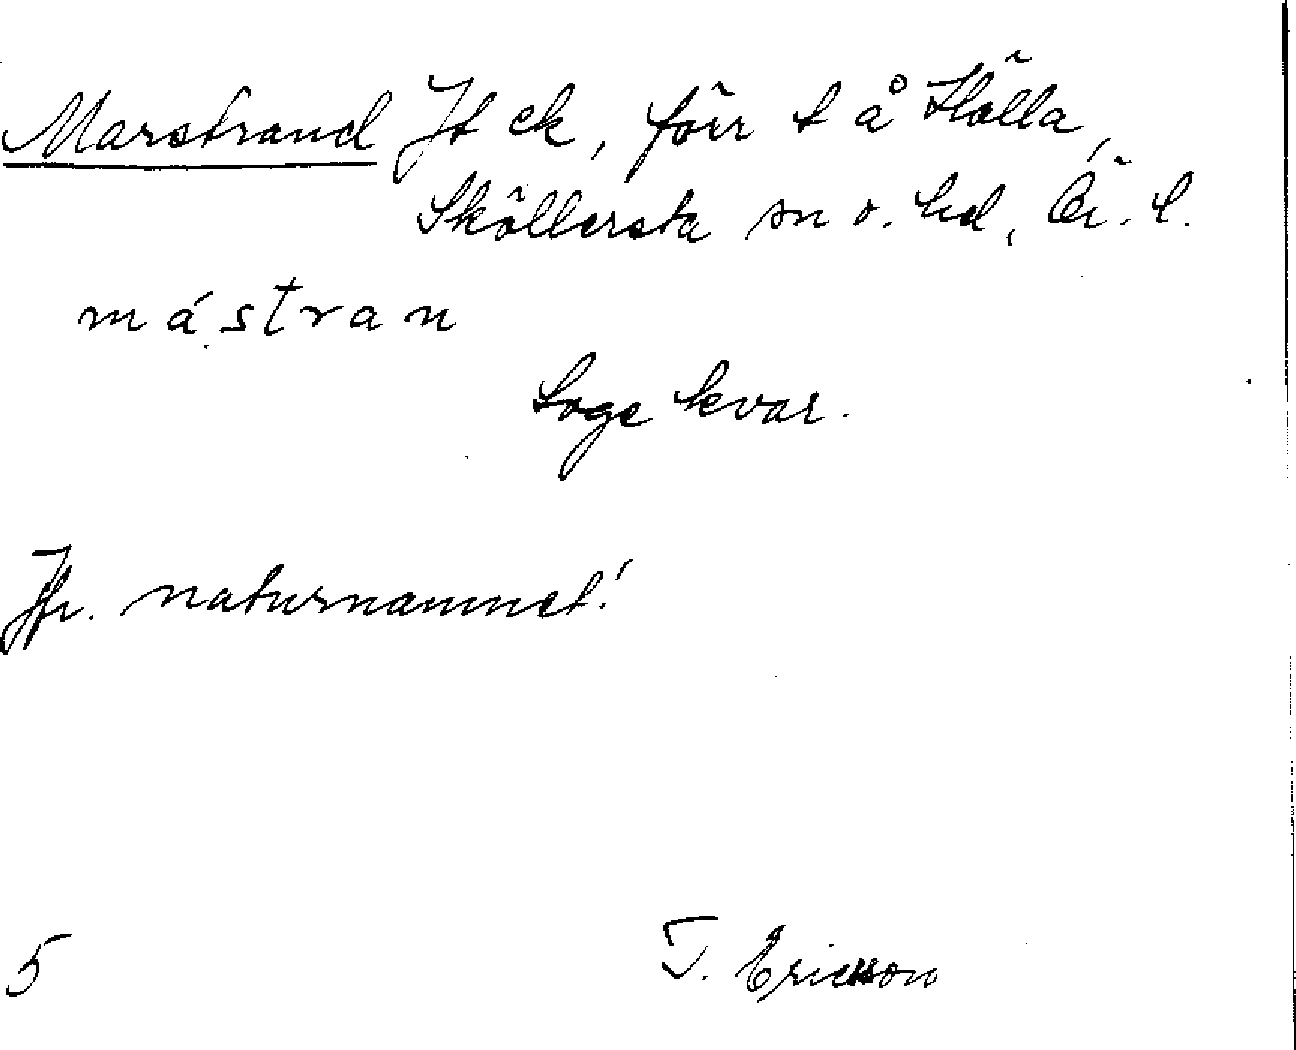 Marstrand Jt ek, förr t å Hölla,
Sköllersta sn o. hd, Ör. l.
mástran
Loge kvar.
Jfr. naturnamnet!
5 T. Ericsson